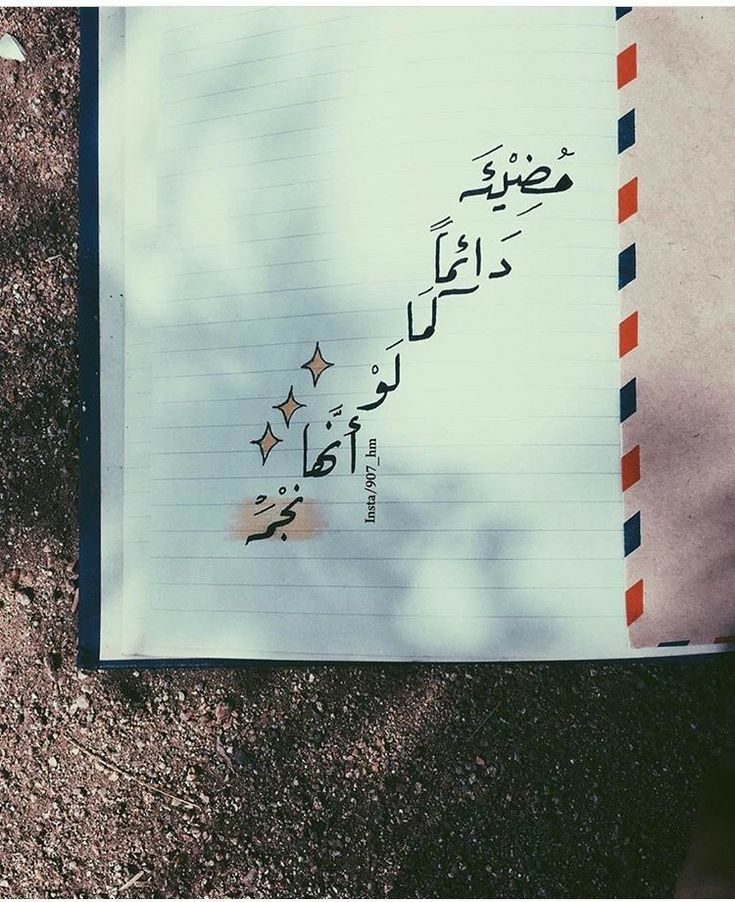 مُضِيْئَه
دَائماً
كَمَا
لَوْ
أنَّها
نَجْمَة
Insta/907_hm